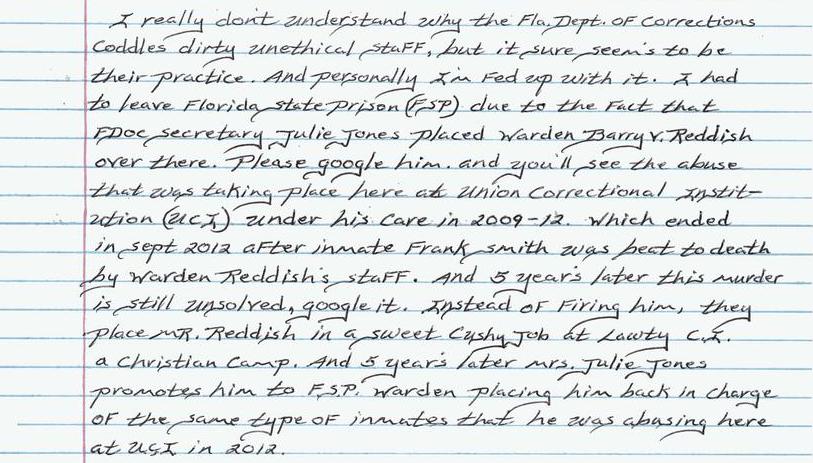 I really don't understand why the Fla. Dept. of Corrections
Coddles dirty unethical staff, but it sure seem's to be
their practice. And personally I'm Fed up with it. I had
to leave Florida State Prison (FSP) due to the Fact that
FDOC secretary Julie Jones placed Warden Barry V. Reddish
over there. Please google him. and you'll see the abuse
that was taking place here at Union Correctional Instit-
ution (U.C.I.) under his care in 2009-12. Which ended
in sept 2012 after inmate Frank Smith was beat to death
by Warden Reddish's staff. And 5 year's later this murder
is still unsolved, google it. Instead of Firing him, they
place MR. Reddish in a sweet Cushy Job at Lawty C.I.
a Christian Camp. And 5 year's later Mrs. Julie Jones
promotes him to F.S.P. Warden placing him back in charge
of the same type of inmates that he was abusing here
at U.C.I in 2012.